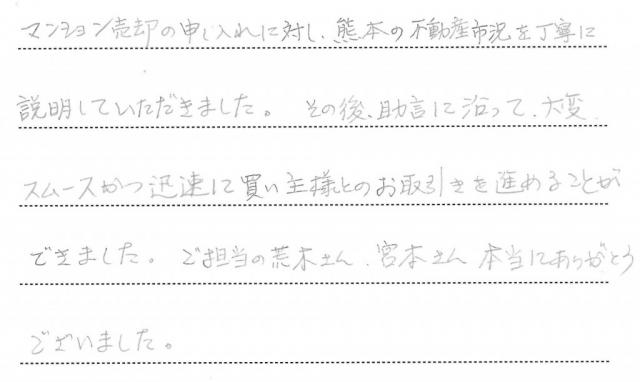 マンション売却の申し入れに対し、熊本の不動産市況を丁寧に
説明していただきました。 その後、助言に沿って、大変、
スムースかつ迅速に買い主様とのお取引きを進めることが
できました。ご担当の荒木さん、宮本さん 本当にありがとう
ございました。